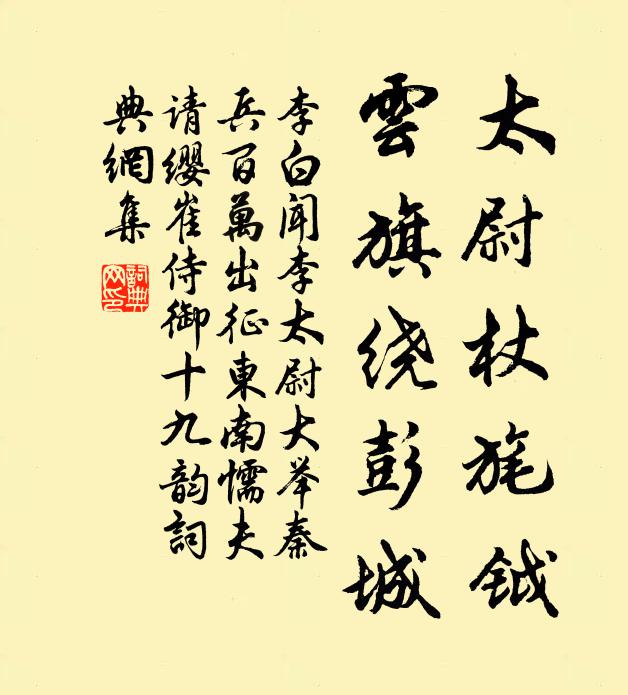 太尉杖旄钺
雲旗绕彭城
李白闻李太尉大举秦
兵百萬出征東南懦夫
请缨崔侍御十九韵詞
典網集
詞典网印